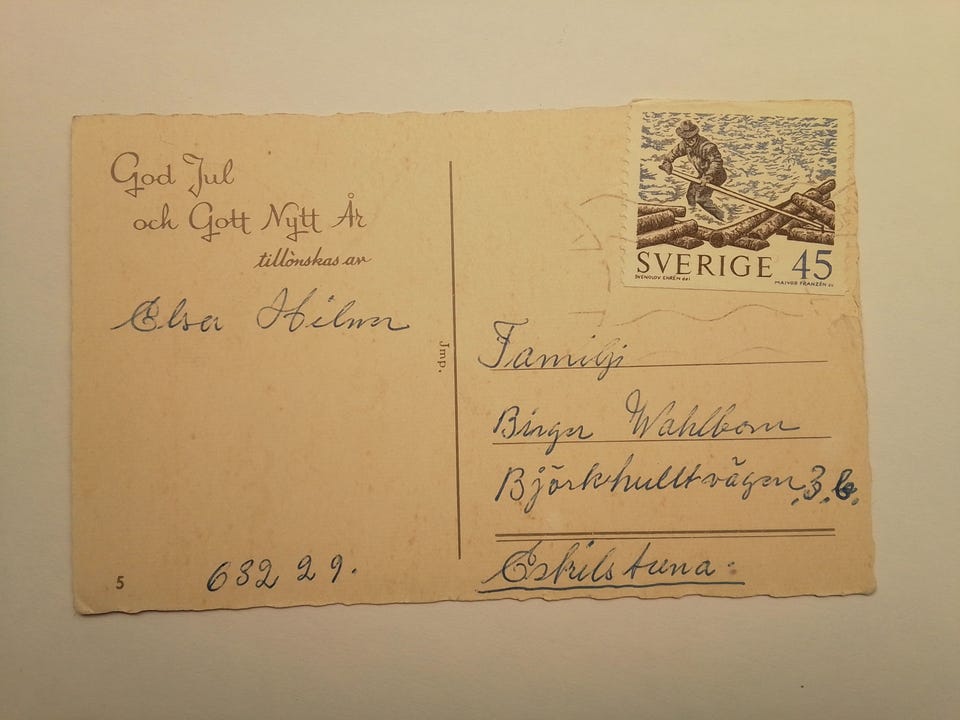 God Jul
och Gott Nytt År
tillönskas av
Elsa Hilmer
Jmp.
5
632 29.
SVERIGE 45
SVENOLOV EHRÉN del
MAJVOR FRANZÉN sc
Familji
Birger Wahlbom
Björkhulltvägen 3.6.
Eskilstuna.